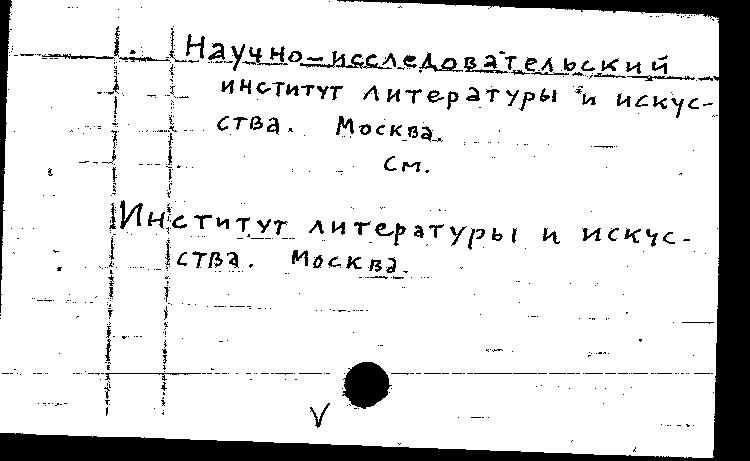 Научно-исследовательский
институт литературы и искус-
ства. Москва.
См.
Институт литературы и искус-
ства. Москва.
V